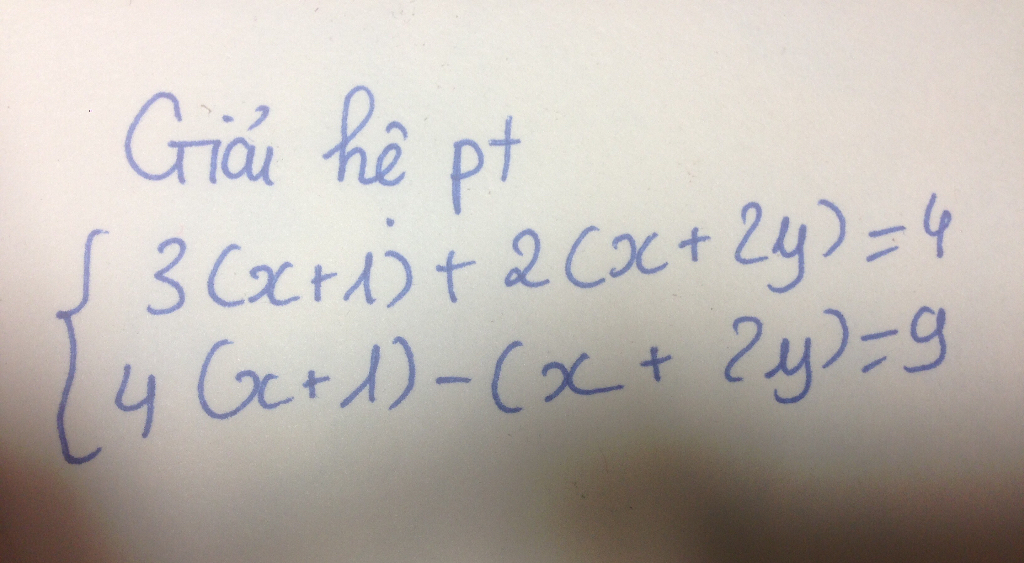 Giải hệ pt
3(x+1) + 2(x+2y)=4
4(x+1)-(x+2y)=9